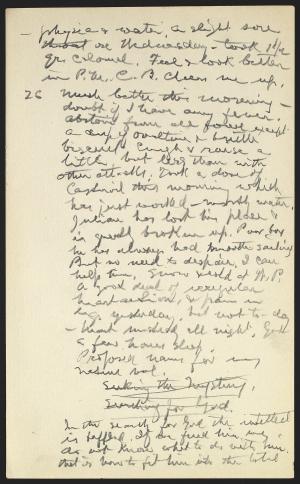 – physic & water, a slight sore
throat on Wednesday – took 1 1/2
grs calomel. Feel & look better
in P.M. C. B. cheers me up.
26 Much better this morning –
doubt if I have any fever.
abstain from all food except
a cup of ovaltine & a little
biscuit. Cough & raise a
little, but less than with
other attacks. Took a dose of
this morning which
has just worked – mostly water.
Julian has lost his place &
is broken up. Poor boy
he has always had smooth sailing
But no need to despair, I can
help him. Snow & cold at W. P.
A good deal of irregular
heart action, & pain in
yesterday, but not to-day
– all night. Got
a few hours sleep.
Proposed name for my
vol.
Seeking the Mystery.
Searching for God.
In the search for God the intellect
is baffled. If we find him, we
do not know what to do with him.
that is how to fit him into the total